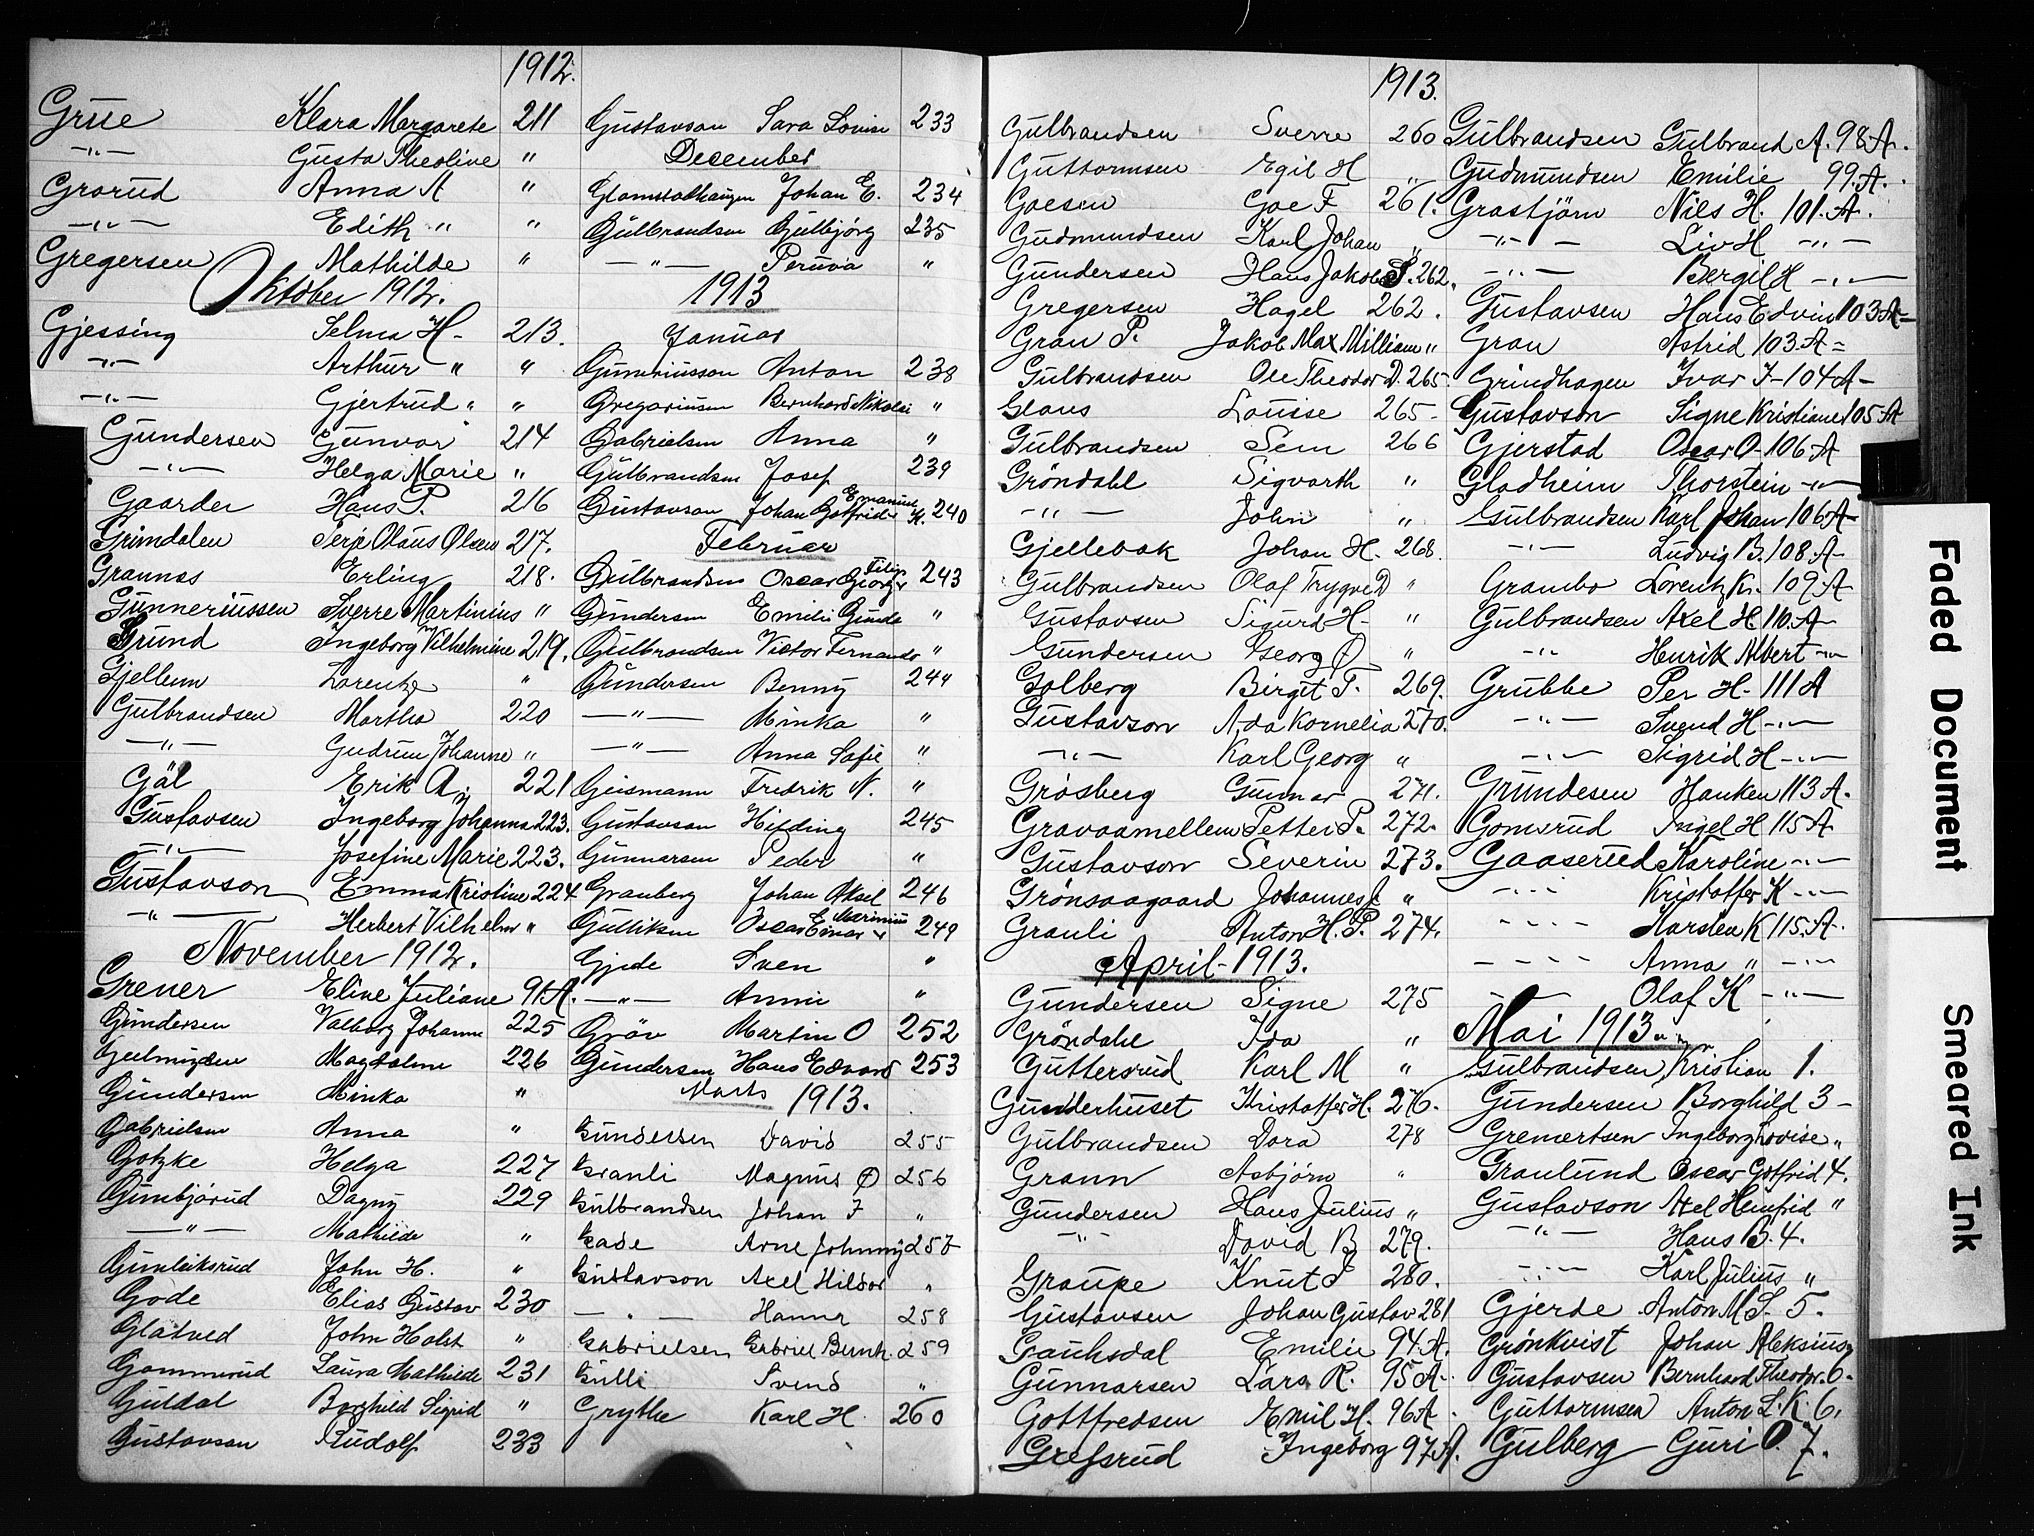 1912.
Grue Klara Margarete 211
—"— Gusta Theoline "
Grorud Anna M "
—"— Edith " "
Gregersen Mathilde "
Oktober 1912.
Gjessing Selma H - 213.
—"— Arthur " "
—"— Gjertrud " "
Gundersen Gunvor 214
—"— Helga Marie "
Gaarder Hans P. 216
Grimdalen Terje Olaus Olsen 217.
Grannes Erling 218.
Gunneriussen Sverre Martinius "
Grund Ingeborg Vilhelmine 219.
Gjellum Lorentz "
Gulbrandsen Martha 220
—"— Gudrun Johanne "
Gäl Erik A. 221
Gustavsen Ingeborg Johanna 223.
—"— Josefine Marie 223.
Gustavson Emma Kristine 224
—"— Herbert Vilhelm "
November 1912.
Grener Eline Juliane 91A.
Gundersen Valborg Johanne 225
Gulmyden Magdalene 226
Gundersen Minka "
Gabrielsen Anna "
Gotzke Helga 227
Gunbjörud Dagny 229
—"— Mathilde "
Gunleiksrud John H. "
Gode Elias Gustav 230
Glatved John Holst "
Gommerud Laura Mathilde 231
Guldal Borghild Sigrid "
Gustavsen Rudolf 233
Gustavson Sara Lovise 233
December
Glomstalhaugen Johan E. 234
Gulbrandsen Gulbjörg 235
—"— Peruva "
1913
Januar
Guneriusson Anton 238
Gregoriusen Bernhard Nikolai "
Gabrielsen Anna "
Gulbrandsen Josef 239
Gustavson Johan Gotfrid Emanuel H. 240
Februar
Gulbrandsen Oscar Georg Filip 243
Gundersen Emilie Gunda "
Gulbrandsen Victor Fernando "
Gundersen Benny 244
—"— Minka "
—"— Anna Sofie "
Geismann Fredrik N. "
Gustavson Hilding 245
Gunnarsen Peder "
Granberg Johan Aksel 246
Gulliksen Oscar Einar Marinius 249
Gjede Sven "
—"— Annie "
Gröv Martin O 252
Gundersen Hans Edvard 253
Marts 1913.
Gundersen David 255
Granli Magnus O 256
Gulbrandsen Johan F "
Gade Arne Johnny 257
Gustavson Axel Hildor "
—"— Hanna 258
Gabrielsen Gabriel Bernh. 259
Gulli Svend "
Grythe Karl H. 260
1913.
Gulbrandsen Sverre 260
Guttormsen Egil H "
Goesen Goe F 261.
Gudmundsen Karl Johan "
Gundersen Hans Jakob S. 262.
Gregersen Hagel 262.
Gran P. Jakob Max Milliam "
Gulbrandsen Ole Theodor D. 265
Glans Louise 265-
Gulbrandsen Sem 266
Gröndahl Sigvarth "
—"— John "
Gjellebæk Johan H. 268.
Gulbrandsen Olaf Trygve D "
Gustavsen Sigurd H- "
Gundersen Georg O "
Golberg Birgit T. 269.
Gustavson Ada Kornelia 270.
—"— Karl Georg "
Grösberg Gunnar 271.
Gravaamellem Petter P. 272.
Gustavson Severin 273.
Grönsaagaard Johannes J. "
Granli Anton H. P. 274.
April-1913.
Gundersen Signe 275
Gröndahl Ida "
Guttersrud Karl M "
Gunderhuset Kristoffer H. 276.
Gulbrandsen Dora 278
Grann Asbjörn "
Gundersen Hans Julius "
—"— David B 279.
Graupe Knut F 280.
Gustavsen Johan Gustav 281
Gauksdal Emilie 94.A.
Gunnarsen Lars R. 95A.
Gottfredsen Emil H. 96A.
Grefsrud Ingeborg 97.A.
Gulbrandsen Gulbrand A. 98A.
Gudmundsen Emilie 99.A.
Grostjörn Nils H. 101.A.
—"— Liv H —"—
—"— Bergil H —"—
Gustavsen Hans Edvin 103 A-
Gran Astrid 103.A=
Grindhagen Ivar I-104A-
Gustavson Signe Kristiane 105.A
Gjerstad Oscar O-106-A
Gladheim Thorstein —"—
Gulbrandsen Karl Johan 106A-
—"— Ludvig B. 108.A-
Grambo Lorentz Kr. - 109.A
Gulbrandsen Axel H. 110.A-
—"— Henrik Albert —"—
Grubbe Per H- 111A
—"— Svend H —"—
—"— Sigrid H —"—
Grundesen Hanken 113 A.
Gomsrud Ingel H 115A
Gaaserud Karoline —"—
—"— Kristoffer K —"—
—"— Karsten K 115.A.
—"— Anna " —"—
—"— Olaf K —"—
Mai 1913.
Gulbrandsen Kristian 1.
Gundersen Borghild 3-
Gremertsen Ingeborg Lovise "
Granlund Oscar Gotfrid 4.
Gustavson Axel Heinfrid "
—"— Hans B. 4.
—"— Karl Julius "
Gjerde Anton M S. 5.
Grönkvist Johan Aleksius "
Gustavsen Bernhard Theodor. 6.
Guttormsen Anton L. K. 6.
Gulberg Guri O. 7.
Faded Document
Smeared Ink